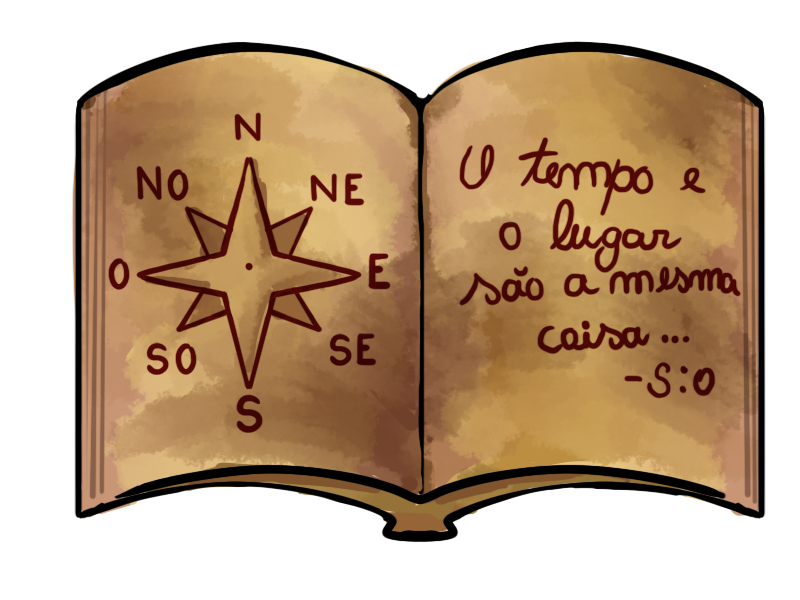 N
NO
NE
O
E
SO
SE
S
O tempo e
o lugar
são a mesma
coisa...
-S:O